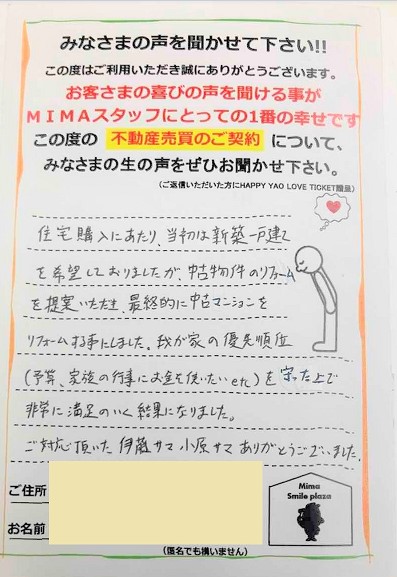 みなさまの声を聞かせて下さい!!
この度はご利用いただき誠にありがとうございます。
お客さまの喜びの声を聞ける事が
MIMAスタッフにとっての1番の幸せです
この度の 不動産売買のご契約 について、
みなさまの生の声をぜひお聞かせ下さい。
(ご返信いただいた方にHAPPY YAO LOVE TICKET贈呈)
住宅購入にあたり、当初は新築一戸建て
を希望しておりましたが、中古物件のリフォーム
を提案いただき、最終的に中古マンションを
リフォームする事にしました。我が家の優先順位
(予算、家族の行事にお金を使いたい etc)を守った上で
非常に満足のいく結果になりました。
ご対応頂いた 伊藤サマ 小原サマ ありがとうございました。
ご住所
お名前
Mima
Smile plaza
(匿名でも構いません)